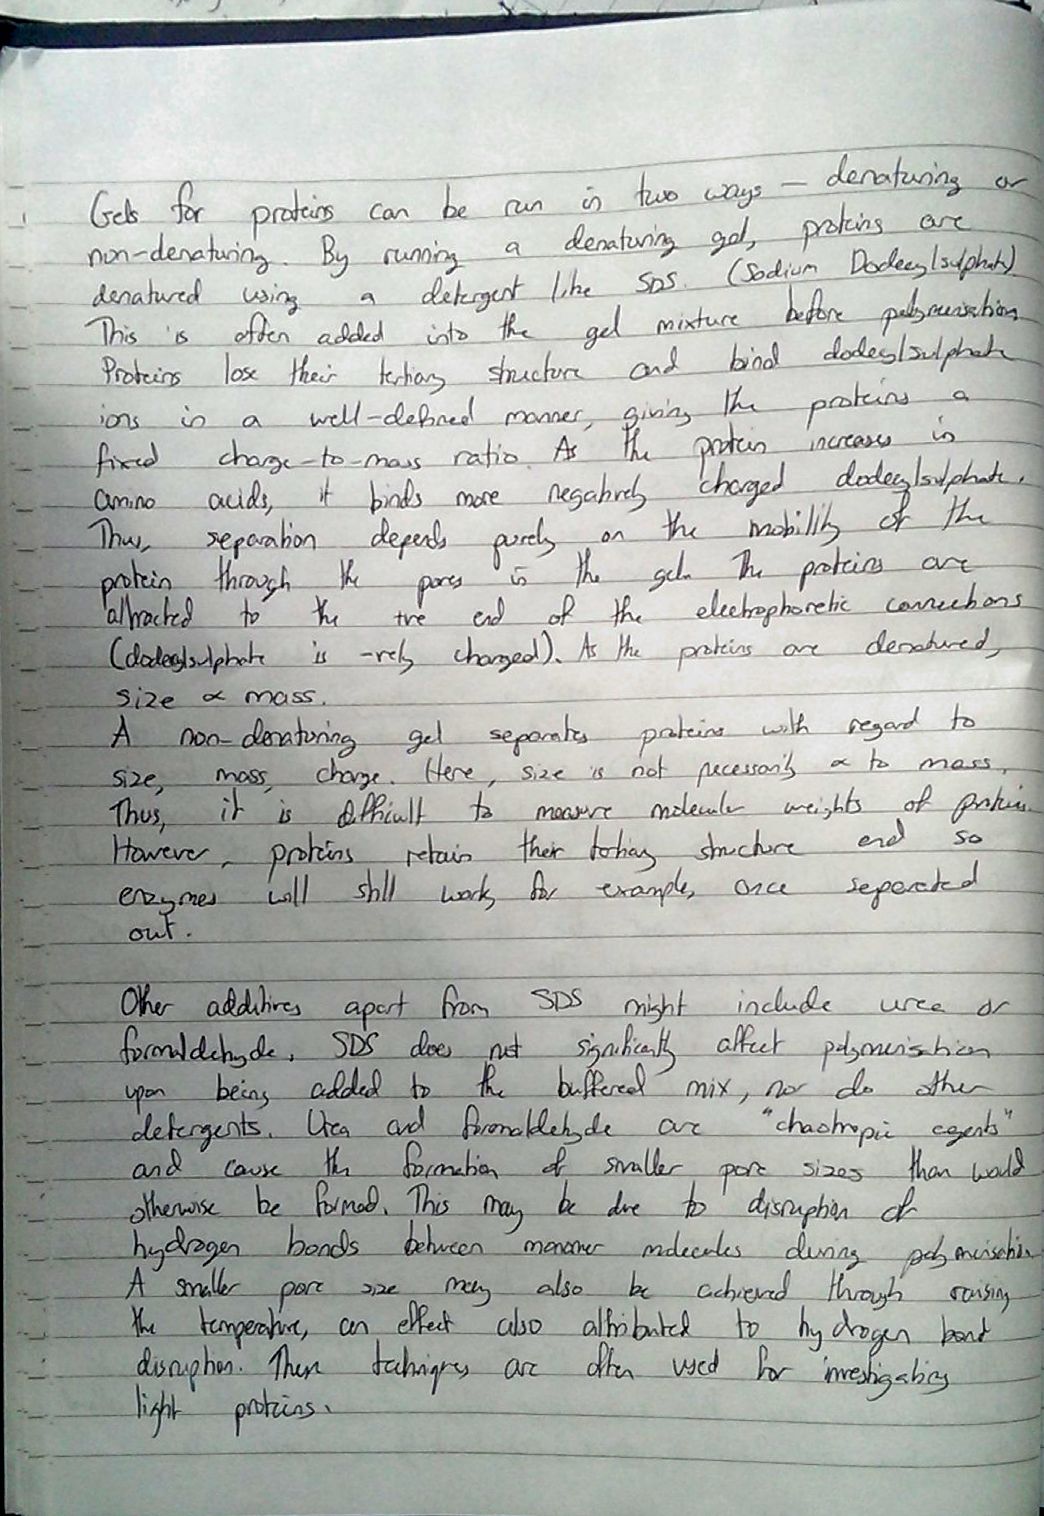 Gels for proteins can be run in two ways – denaturing or
non-denaturing. By running a denaturing gel, proteins are
denatured using a detergent like SDS. (Sodium Dodecylsulphate)
This is often added into the gel mixture before polymerisation
Proteins lose their tertiary structure and bind dodecylsulphate
ions in a well-defined manner, giving the proteins a
fixed charge-to-mass ratio. As the protein increases in
amino acids, it binds more negatively charged dodecylsulphate.
Thus, separation depends purely on the mobility of the
protein through the pores in the gel. The proteins are
attracted to the +ve end of the electrophoretic connections
(dodecylsulphate is -vely charged). As the proteins are denatured,
size ∝ mass.
A non-denaturing gel separates proteins with regard to
size, mass, charge. Here, size is not necessarily ∝ to mass.
Thus, it is difficult to measure molecular weights of protein.
However, proteins retain their tertiary structure and so
enzymes will still work, for example, once separated
out.
Other additives apart from SDS might include urea or
formaldehyde. SDS does not significantly affect polymerisation
upon being added to the buffered mix, nor do other
detergents. Urea and formaldehyde are "chaotropic agents"
and cause the formation of smaller pore sizes than would
otherwise be formed. This may be due to disruption of
hydrogen bonds between monomer molecules during polymerisation
A smaller pore size may also be achieved through raising
the temperature, an effect also attributed to hydrogen bond
disruption. These techniques are often used for investigating
light proteins.